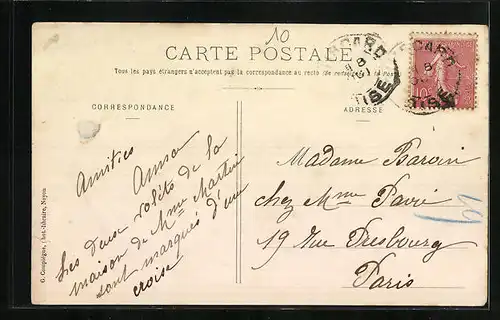 10
CARTE POSTALE
Tous les pays étrangers n'acceptent pas la correspondance au recto (Se renseigner à la Poste)
CORRESPONDANCE
ADRESSE
Amitiés
Anna
Les deux volets de la
maison de Mme Martin
sont marqués d'une
croise
Madame Baroin
chez Mme Pavié
19 Rue Presbourg
Paris
G. Compiègne, phot.-libraire, Noyon